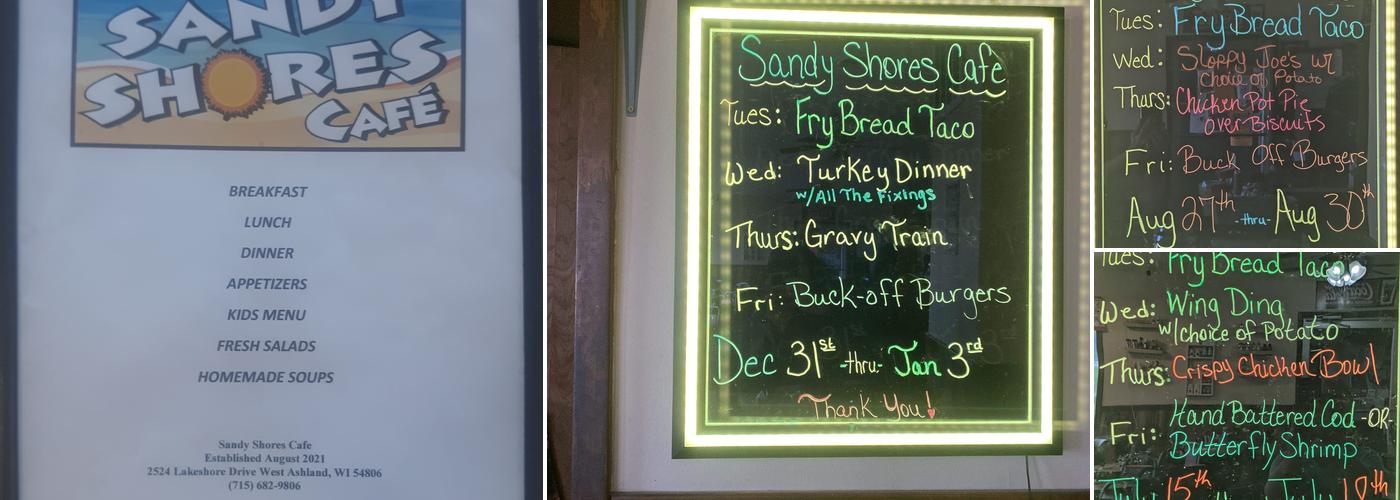 SANDY
SHORES
CAFÉ
BREAKFAST
LUNCH
DINNER
APPETIZERS
KIDS MENU
FRESH SALADS
HOMEMADE SOUPS
Sandy Shores Cafe
Established August 2021
2524 Lakeshore Drive West Ashland, WI 54806
(715) 682-9806
Sandy Shores Cafe
Tues: Fry Bread Taco
Wed: Turkey Dinner
w/All The Fixings
Thurs: Gravy Train
Fri: Buck-off Burgers
Dec 31st -thru- Jan 3rd
Thank You!
Tues: Fry Bread Taco
Wed: Sloppy Joe's w/
Choice of Potato
Thurs: Chicken Pot Pie
over Biscuits
Fri: Buck Off Burgers
Aug 27th -thru- Aug 30th
Tues: Fry Bread Taco
Wed: Wing Ding
w/choice of Potato
Thurs: Crispy Chicken Bowl
Fri: Hand Battered Cod -OR-
Butterfly Shrimp
July 15th